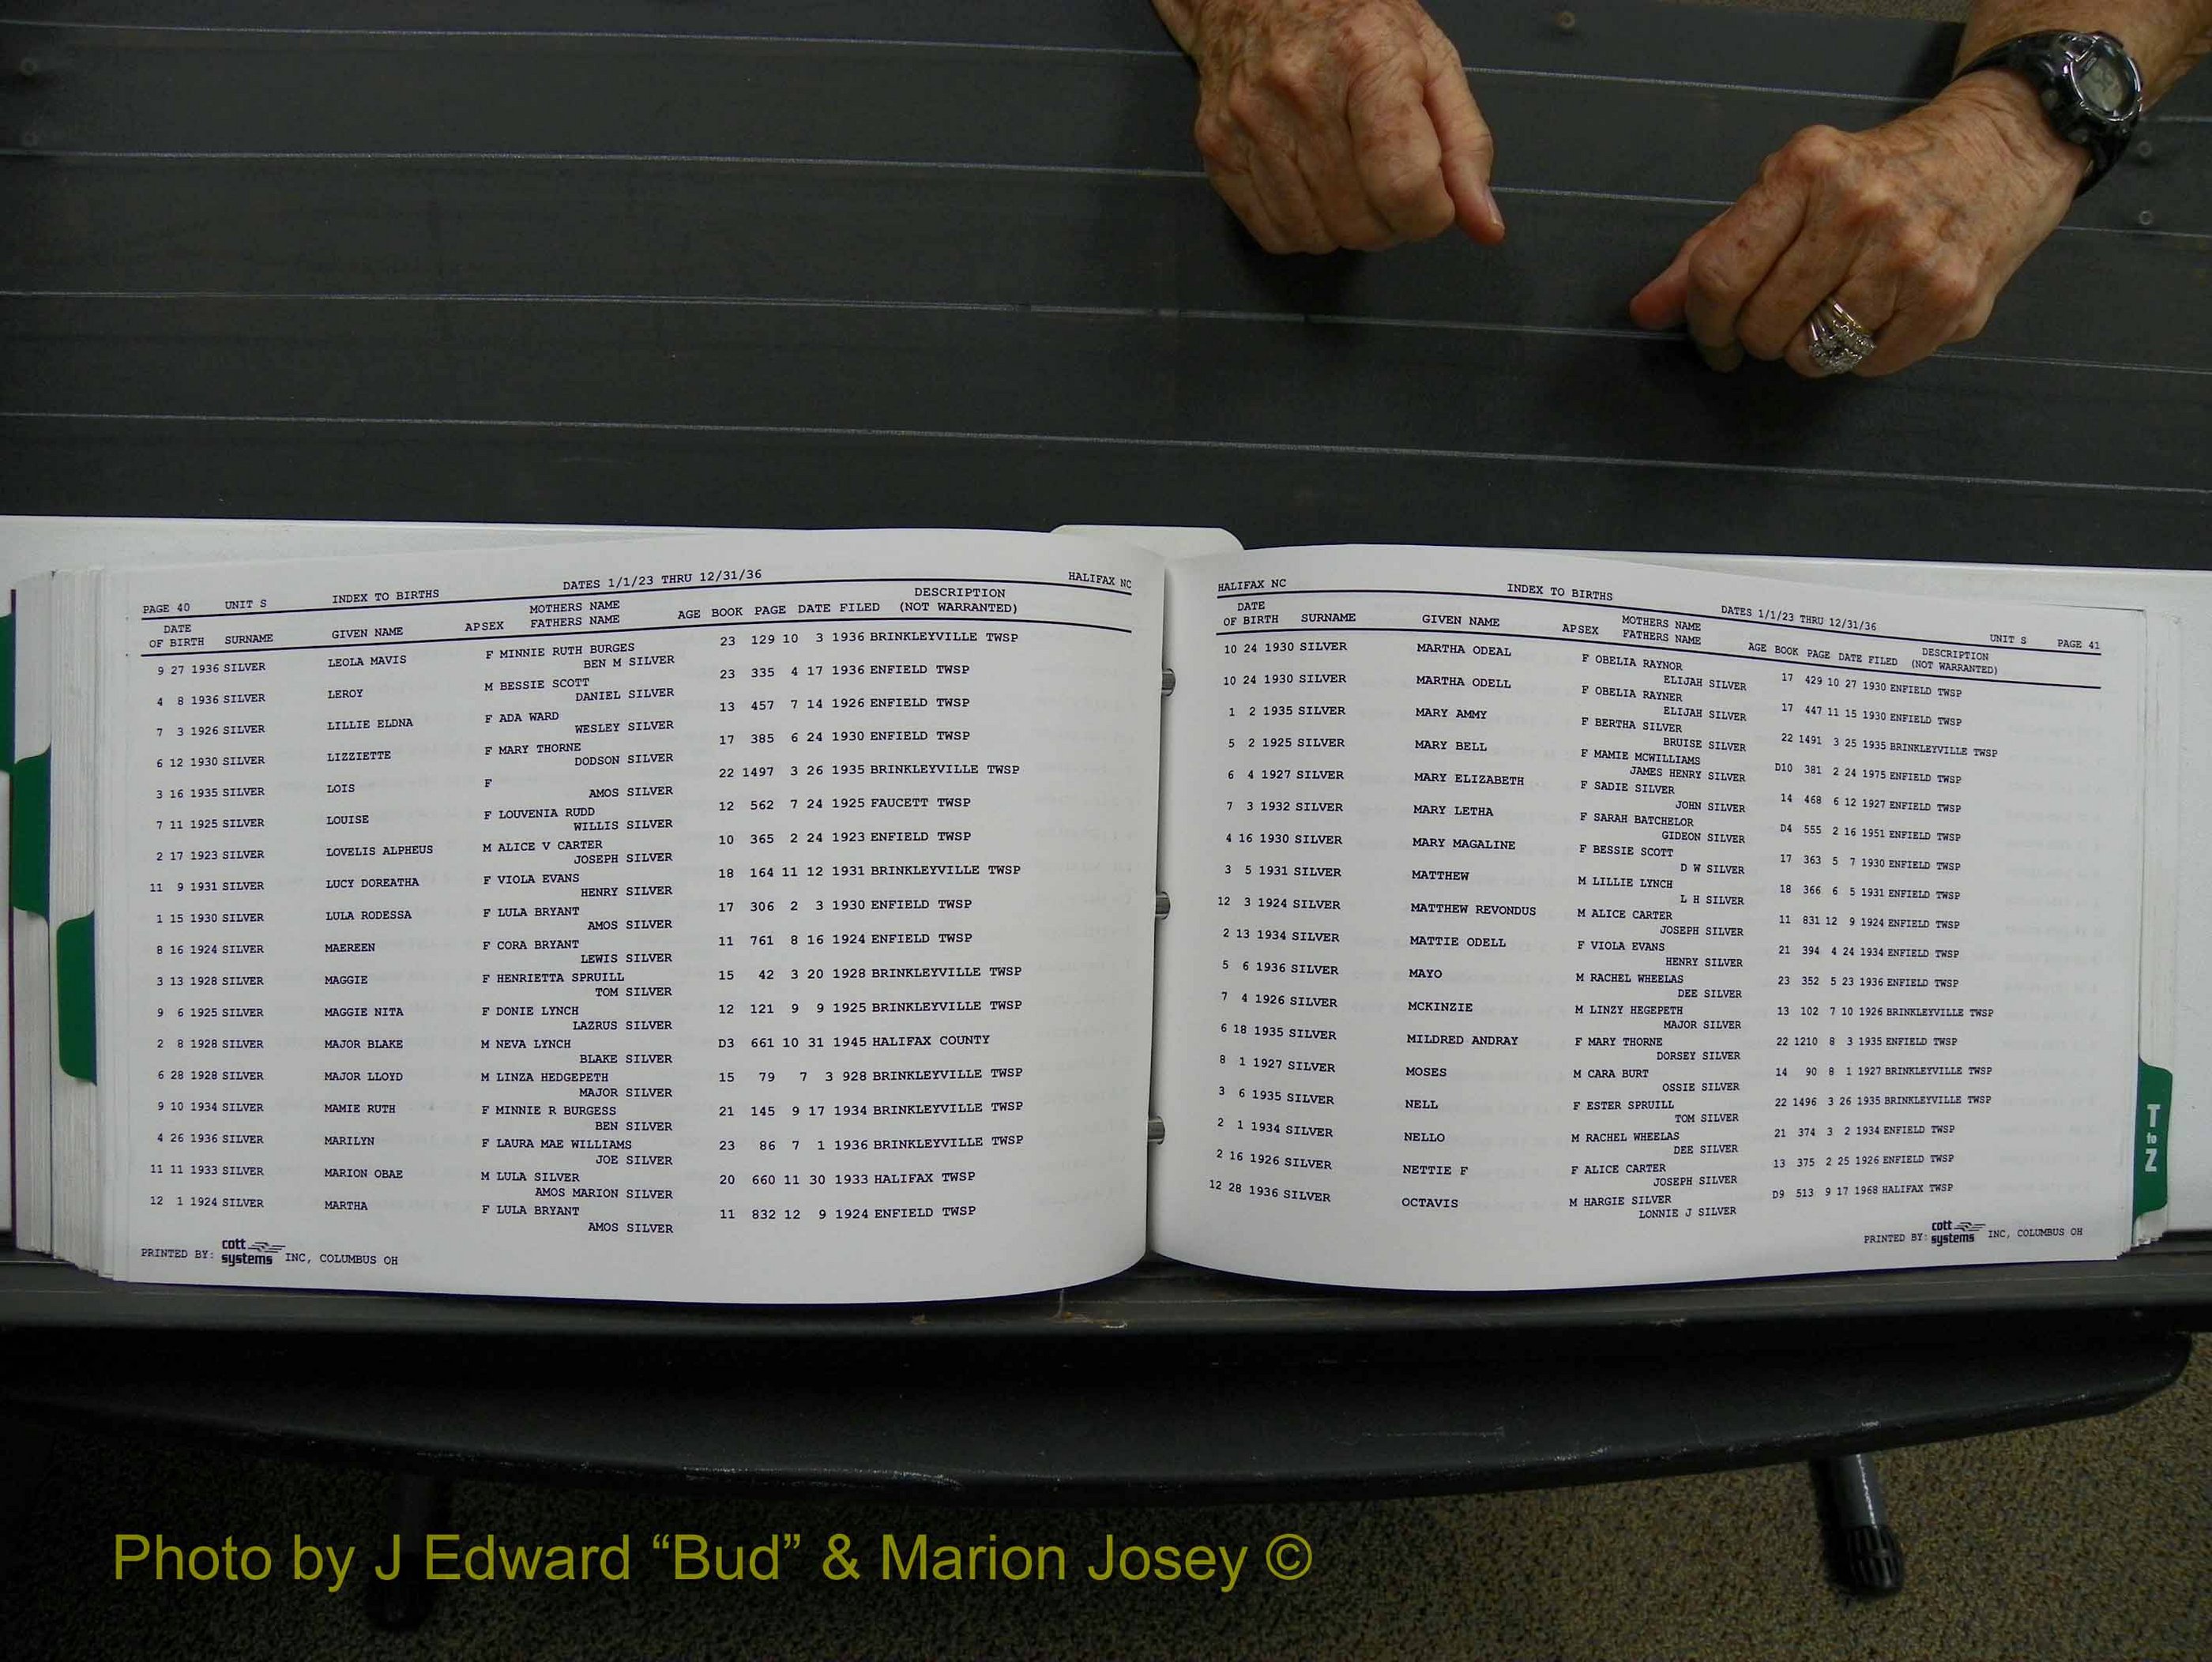 PAGE 40 UNIT S INDEX TO BIRTHS DATES 1/1/23 THRU 12/31/36 HALIFAX NC
DATE OF BIRTH SURNAME GIVEN NAME AP SEX MOTHERS NAME FATHERS NAME AGE BOOK PAGE DATE FILED DESCRIPTION (NOT WARRANTED)
9 27 1936 SILVER LEOLA MAVIS F MINNIE RUTH BURGES 23 129 10 3 1936 BRINKLEYVILLE TWSP
BEN M SILVER
4 8 1936 SILVER LEROY M BESSIE SCOTT 23 335 4 17 1936 ENFIELD TWSP
DANIEL SILVER
7 3 1926 SILVER LILLIE ELDNA F ADA WARD 13 457 7 14 1926 ENFIELD TWSP
WESLEY SILVER
6 12 1930 SILVER LIZZIETTE F MARY THORNE 17 385 6 24 1930 ENFIELD TWSP
DODSON SILVER
3 16 1935 SILVER LOIS F 22 1497 3 26 1935 BRINKLEYVILLE TWSP
AMOS SILVER
7 11 1925 SILVER LOUISE F LOUVENIA RUDD 12 562 7 24 1925 FAUCETT TWSP
WILLIS SILVER
2 17 1923 SILVER LOVELIS ALPHEUS M ALICE V CARTER 10 365 2 24 1923 ENFIELD TWSP
JOSEPH SILVER
11 9 1931 SILVER LUCY DOREATHA F VIOLA EVANS 18 164 11 12 1931 BRINKLEYVILLE TWSP
HENRY SILVER
1 15 1930 SILVER LULA RODESSA F LULA BRYANT 17 306 2 3 1930 ENFIELD TWSP
AMOS SILVER
8 16 1924 SILVER MAEREEN F CORA BRYANT 11 761 8 16 1924 ENFIELD TWSP
LEWIS SILVER
3 13 1928 SILVER MAGGIE F HENRIETTA SPRUILL 15 42 3 20 1928 BRINKLEYVILLE TWSP
TOM SILVER
9 6 1925 SILVER MAGGIE NITA F DONIE LYNCH 12 121 9 9 1925 BRINKLEYVILLE TWSP
LAZRUS SILVER
2 8 1928 SILVER MAJOR BLAKE M NEVA LYNCH D3 661 10 31 1945 HALIFAX COUNTY
BLAKE SILVER
6 28 1928 SILVER MAJOR LLOYD M LINZA HEDGEPETH 15 79 7 3 928 BRINKLEYVILLE TWSP
MAJOR SILVER
9 10 1934 SILVER MAMIE RUTH F MINNIE R BURGESS 21 145 9 17 1934 BRINKLEYVILLE TWSP
BEN SILVER
4 26 1936 SILVER MARILYN F LAURA MAE WILLIAMS 23 86 7 1 1936 BRINKLEYVILLE TWSP
JOE SILVER
11 11 1933 SILVER MARION OBAE M LULA SILVER 20 660 11 30 1933 HALIFAX TWSP
AMOS MARION SILVER
12 1 1924 SILVER MARTHA F LULA BRYANT 11 832 12 9 1924 ENFIELD TWSP
AMOS SILVER
PRINTED BY: cott systems INC, COLUMBUS OH
HALIFAX NC INDEX TO BIRTHS DATES 1/1/23 THRU 12/31/36 UNIT S PAGE 41
DATE OF BIRTH SURNAME GIVEN NAME AP SEX MOTHERS NAME FATHERS NAME AGE BOOK PAGE DATE FILED DESCRIPTION (NOT WARRANTED)
10 24 1930 SILVER MARTHA ODEAL F OBELIA RAYNOR 17 429 10 27 1930 ENFIELD TWSP
ELIJAH SILVER
10 24 1930 SILVER MARTHA ODELL F OBELIA RAYNER 17 447 11 15 1930 ENFIELD TWSP
ELIJAH SILVER
1 2 1935 SILVER MARY AMMY F BERTHA SILVER 22 1491 3 25 1935 BRINKLEYVILLE TWSP
BRUISE SILVER
5 2 1925 SILVER MARY BELL F MAMIE MCWILLIAMS D10 381 2 24 1975 ENFIELD TWSP
JAMES HENRY SILVER
6 4 1927 SILVER MARY ELIZABETH F SADIE SILVER 14 468 6 12 1927 ENFIELD TWSP
JOHN SILVER
7 3 1932 SILVER MARY LETHA F SARAH BATCHELOR D4 555 2 16 1951 ENFIELD TWSP
GIDEON SILVER
4 16 1930 SILVER MARY MAGALINE F BESSIE SCOTT 17 363 5 7 1930 ENFIELD TWSP
D W SILVER
3 5 1931 SILVER MATTHEW M LILLIE LYNCH 18 366 6 5 1931 ENFIELD TWSP
L H SILVER
12 3 1924 SILVER MATTHEW REVONDUS M ALICE CARTER 11 831 12 9 1924 ENFIELD TWSP
JOSEPH SILVER
2 13 1934 SILVER MATTIE ODELL F VIOLA EVANS 21 394 4 24 1934 ENFIELD TWSP
HENRY SILVER
5 6 1936 SILVER MAYO M RACHEL WHEELAS 23 352 5 23 1936 ENFIELD TWSP
DEE SILVER
7 4 1926 SILVER MCKINZIE M LINZY HEGEPETH 13 102 7 10 1926 BRINKLEYVILLE TWSP
MAJOR SILVER
6 18 1935 SILVER MILDRED ANDRAY F MARY THORNE 22 1210 8 3 1935 ENFIELD TWSP
DORSEY SILVER
8 1 1927 SILVER MOSES M CARA BURT 14 90 8 1 1927 BRINKLEYVILLE TWSP
OSSIE SILVER
3 6 1935 SILVER NELL F ESTER SPRUILL 22 1496 3 26 1935 BRINKLEYVILLE TWSP
TOM SILVER
2 1 1934 SILVER NELLO M RACHEL WHEELAS 21 374 3 2 1934 ENFIELD TWSP
DEE SILVER
2 16 1926 SILVER NETTIE F F ALICE CARTER 13 375 2 25 1926 ENFIELD TWSP
JOSEPH SILVER
12 28 1936 SILVER OCTAVIS M HARGIE SILVER D9 513 9 17 1968 HALIFAX TWSP
LONNIE J SILVER
PRINTED BY: cott systems INC, COLUMBUS OH
T to Z
Photo by J Edward “Bud” & Marion Josey ©